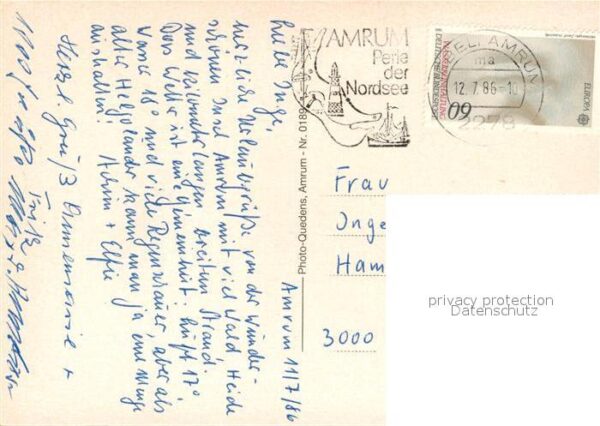 Amrum 11/7/86
Liebe Inge,
herzliche Urlaubsgrüße von der wunder-
schönen Insel Amrum mit viel Wald Heide
und kilometerlangem breitem Strand.
Das Wetter ist eine Gemeinheit: Luft 17°
Wasser 18° und viele Regenschauer, aber als
alter Helgoländer kann man ja eine Menge
aushalten! Achim + Elfie
Herzl. Grüße
Photo-Quedens, Amrum - Nr. 0189
AMRUM
Perle
der
Nordsee
NEBEL, AMRUM
ma
12.7.86-10
2278
DEUTSCHE BUNDESPOST
60
EUROPA
Frau
Inge
Ham
3000
privacy protection
Datenschutz